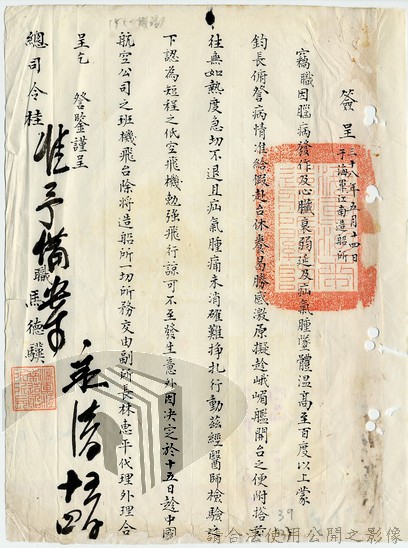 簽呈 三十八年五月十四日
于海軍江南造船所
竊職因腦病發作及心臟衰弱延及疝氣腫墜體溫高至百度以上蒙
鈞長俯詧病情准給假赴台休養曷勝感激原擬趁峨嵋艦開台之便附搭
往無如熱度急切不退且疝氣腫痛未消確難掙扎行動茲經醫師檢驗
下認為短程之低空飛機勉强飛行諒可不至發生意外因決定於十五日趁中國
航空公司之班機飛台除將造船所一切所務交由副所長林惠平代理外理合
呈乞 詧鑒謹呈
總司令桂
職馬德驥
准予備案
永清
39
請合法使用公開之影像